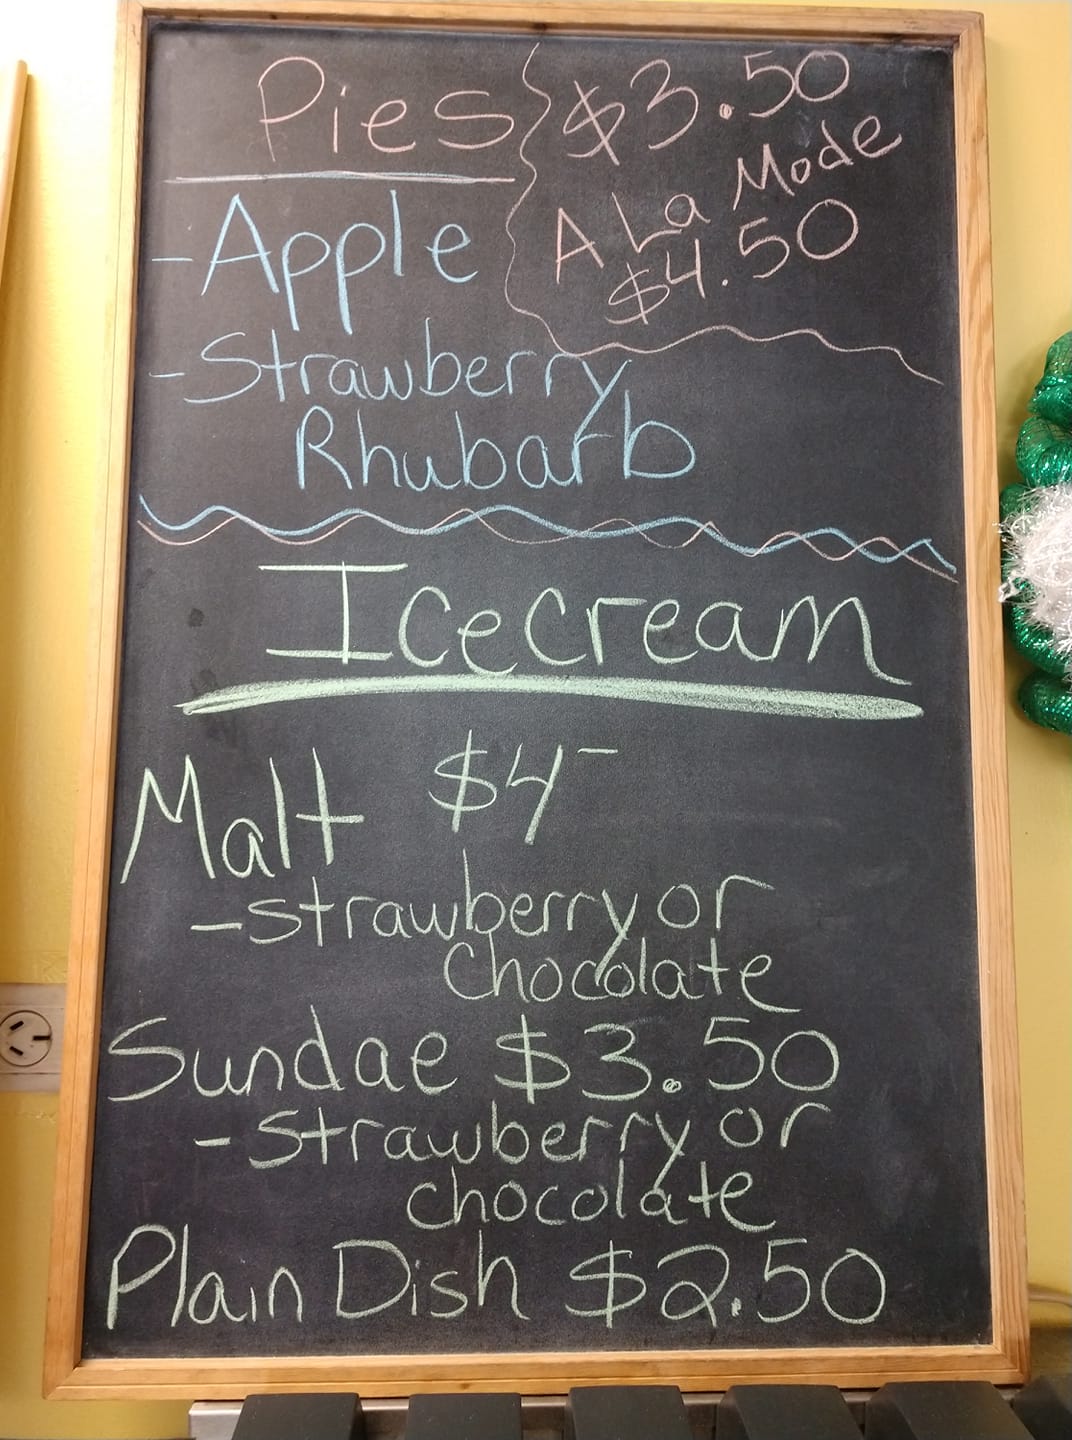 Pies $3.50
A La Mode
$4.50
-Apple
-Strawberry
Rhubarb
Icecream
Malt $4-
-strawberry or
Chocolate
Sundae $3.50
-strawberry or
chocolate
Plain Dish $2.50